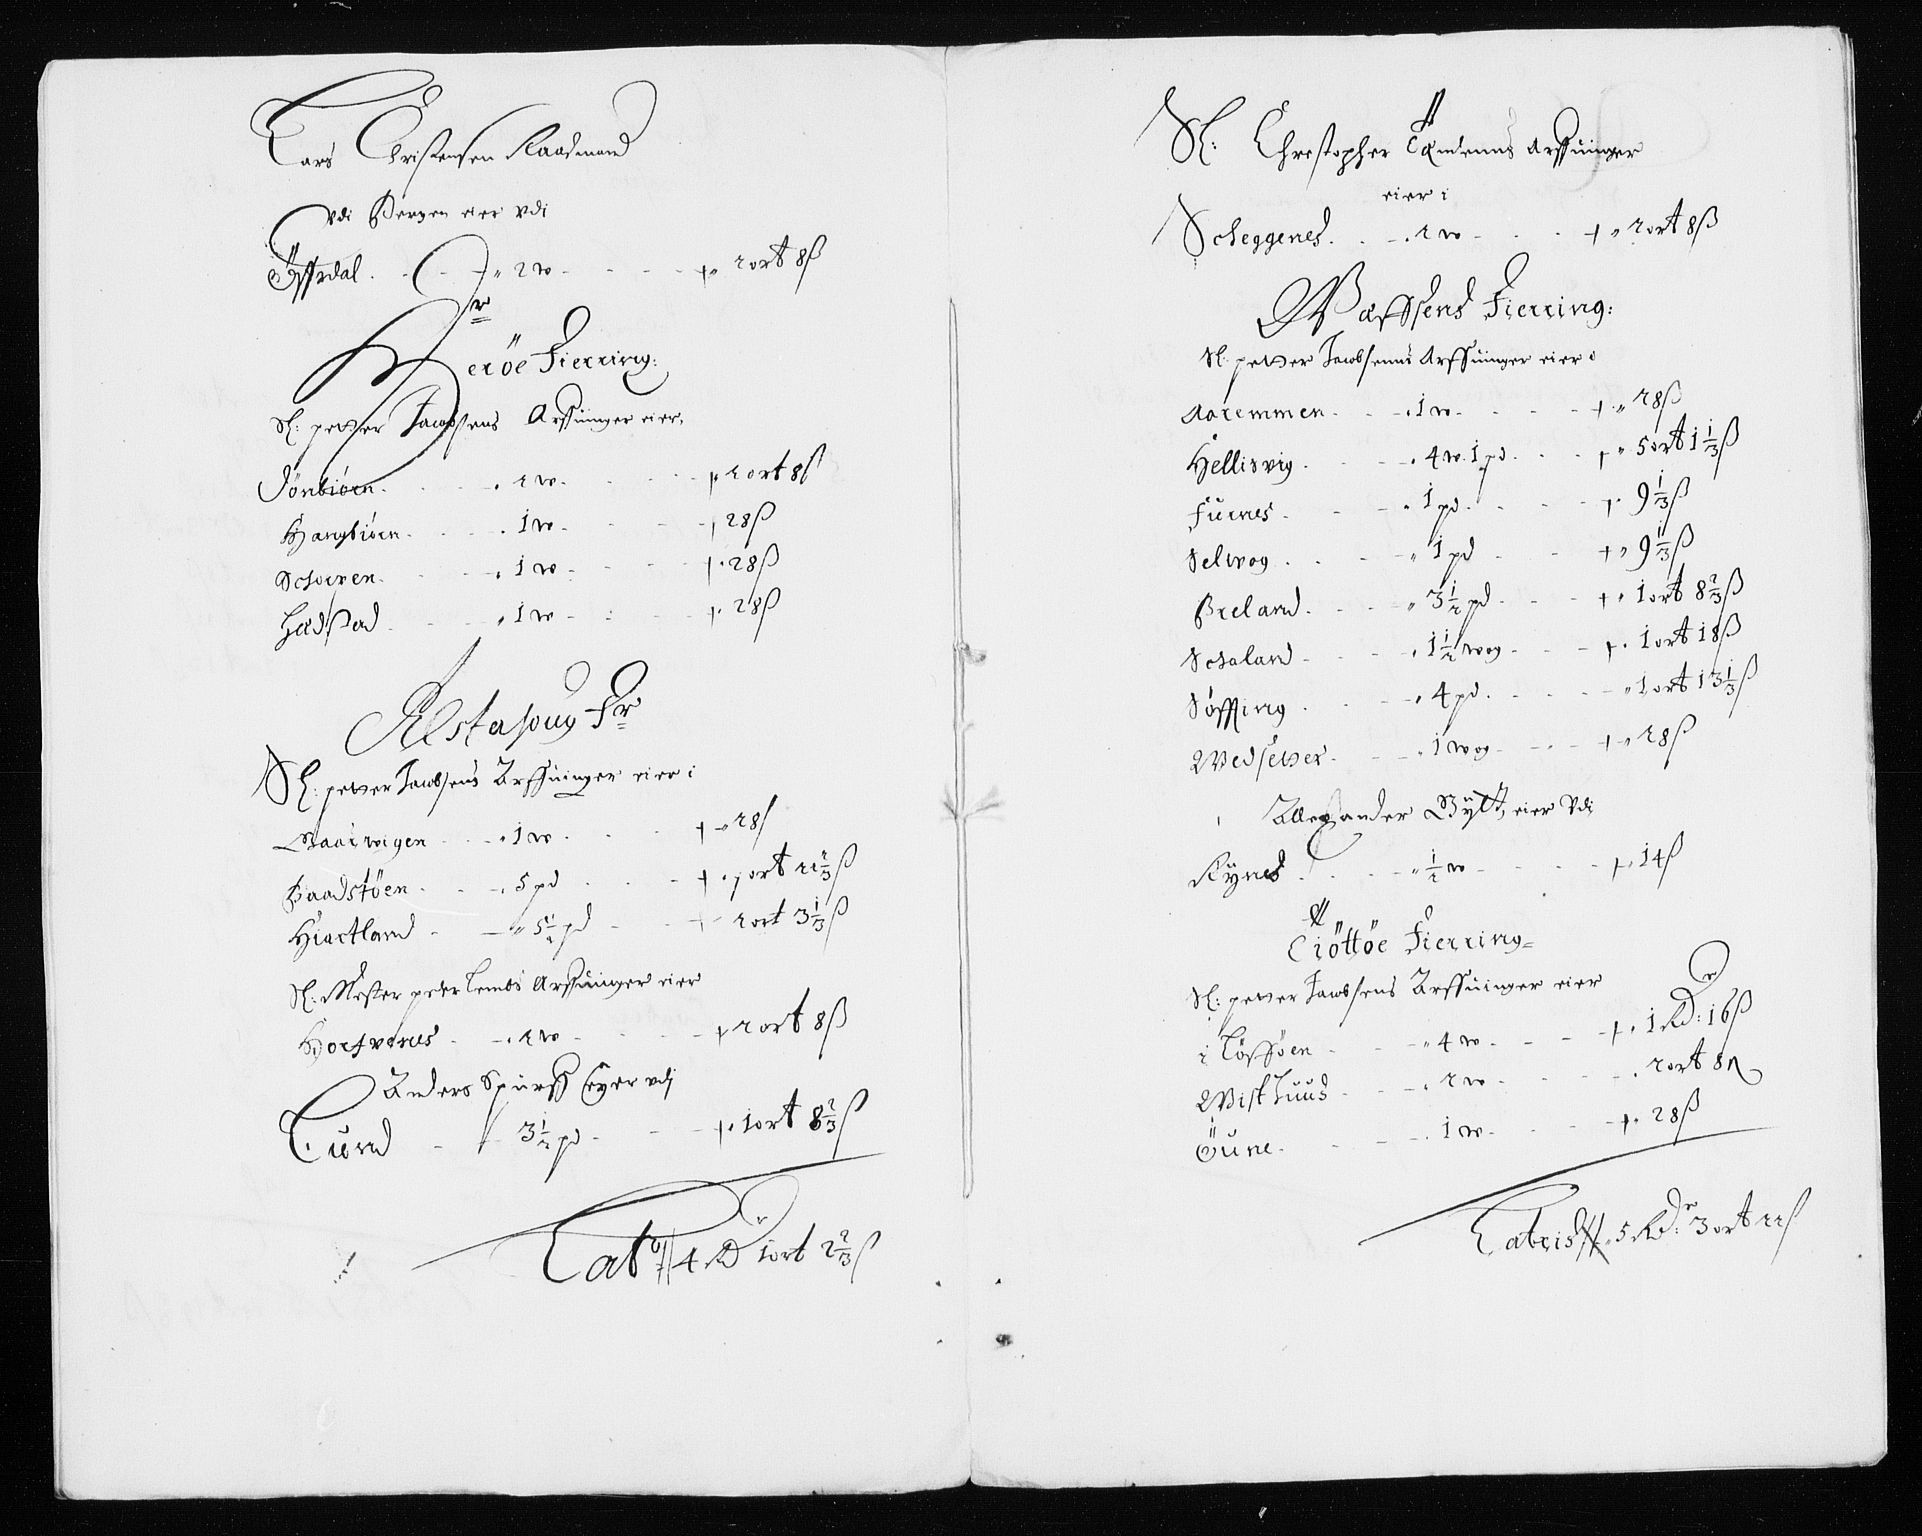 Lars Christensen Raadmand
vdi Bergen eier vdi
Öffrdal . . . „ 2 w . . . „ 2 ort 8 ß
Heröe Fierring:
Sl: petter Jacobsens Arffuinger eier
Sönbiörn . . . 2 w . . . 2 ort 8 ß
Hargbiörn . . . 1 w . . . 28 ß
Schorven . . . 1 w . . . 28 ß
Hadstad . . . 1 w . . . 28 ß
Alstahoug Fr
Sl: petter Jacobsens Arffuinger eier i
Maarwigen . . . 1 w . . . 28 ß
Baadstöen . . . 5 pd . . . 1 ort 22 2/3 ß
Hiartland . . . 5 1/2 pd . . . 2 ort 3 1/3 ß
Sl: Mester peder Lembs Arffuinger eier
Hortvenes . . . 2 w . . . 2 ort 8 ß
Anders Spurff eyer vdj
Lund . . . 3 1/2 pd . . . 1 ort 8 2/3 ß
Lat: 4 Rd 1 ort 2 2/3 ß
Sl: Chrestopher Arffuinger
eier i
Scheggenes . . . 2 w . . . 2 ort 8 ß
Wæffsens Fierring:
Sl. petter Jacobsenns Arffuinger eier
Aaremmen . . . 1 w . . . 28 ß
Hellisvig . . . 4 w. 1 pd . . . 5 ort 1 1/3 ß
Fürnes . . . 1 pd . . . 9 1/3 ß
Selwog . . . 1 pd . . . 9 1/3 ß
Breland . . . 3 1/2 pd . . . 1 ort 8 2/3 ß
Schaland . . . 1 1/2 wog . . . 1 ort 18 ß
Söffting . . . 4 pd . . . 1 ort 13 1/3 ß
Wedsetter . . . 1 wog . . . 28 ß
Allexander Bylt, eier Vdi
Rynes . . . 1/2 w . . . 14 ß
Tiöttöe Fierring
Sl: petter Jacobsens Arffuinger eier
i Töfföen . . . 4 w . . . 1 Rd: 16 ß
Wisthuus . . . 2 w . . . 2 ort 8 ß
Öune . . . 1 w . . . 28 ß
Latris 5 Rdr 3 ort 22 ß